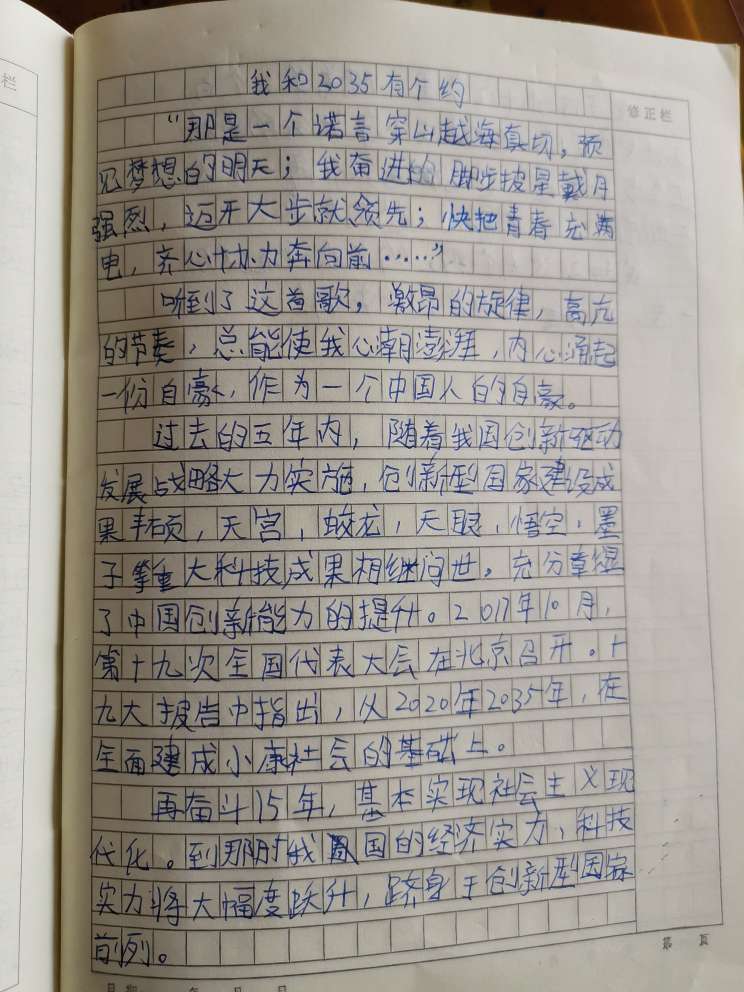 我和2035有个约
"那是一个诺言穿山越海真切，预
见梦想的明天；我奋进的脚步披星戴月
强烈，迈开大步就领先；快把青春充满
电，齐心协力奔向前……"
听到了这首歌，激昂的旋律，高亢
的节奏，总能使我心潮澎湃，内心涌起
一份自豪，作为一个中国人的自豪。
过去的五年内，随着我国创新驱动
发展战略大力实施，创新型国家建设成
果丰硕，天宫，蛟龙，天眼，悟空，墨
子等重大科技成果相继问世，充分章显
了中国创新能力的提升。2017年10月，
第十九次全国代表大会在北京召开。十
九大报告中指出，从2020年2035年，在
全面建成小康社会的基础上。
再奋斗15年，基本实现社会主义现
代化。到那时我国的经济实力、科技
实力将大幅度跃升，跻身于创新型国家
前列。
修正栏
栏
第 页
日期 年 月 日